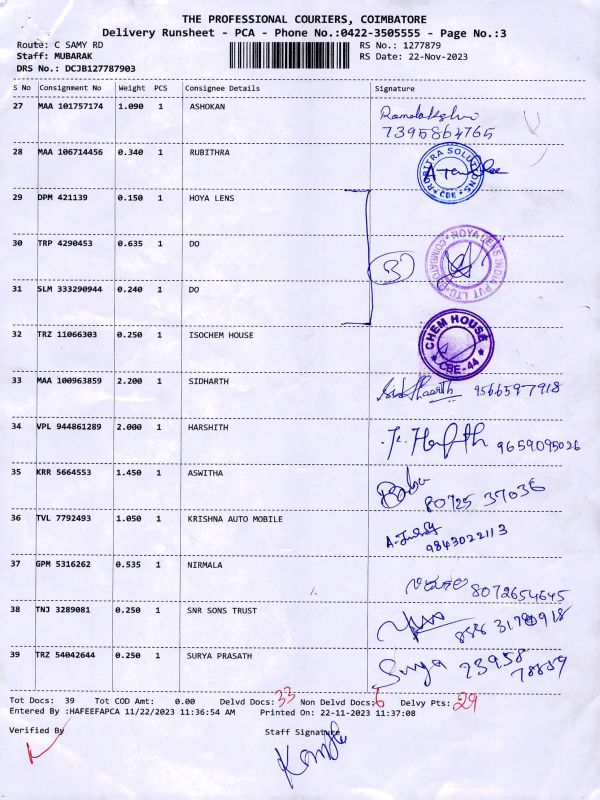 THE PROFESSIONAL COURIERS, COIMBATORE
Delivery Runsheet - PCA - Phone No.:0422-3505555 - Page No.:3
Route: C SAMY RD RS No.: 1277879
Staff: MUBARAK RS Date: 22-Nov-2023
DRS No.: DCJB127787903
S No Consignment No Weight PCS Consignee Details Signature
27 MAA 101757174 1.090 1 ASHOKAN
7395864765
28 MAA 106714456 0.340 1 RUBITHRA
SOLUTIONS CBE
29 DPM 421139 0.150 1 HOYA LENS
30 TRP 4290453 0.635 1 DO
3
HOYA LENS INDIA PVT LTD COIMBATORE
31 SLM 333290944 0.240 1 DO
32 TRZ 11066303 0.250 1 ISOCHEM HOUSE
CHEM HOUSE CBE-44
33 MAA 100963859 2.200 1 SIDHARTH
9566597918
34 VPL 944861289 2.000 1 HARSHITH
9659095026
35 KRR 5664553 1.450 1 ASWITHA
Babu
80725 37036
36 TVL 7792493 1.050 1 KRISHNA AUTO MOBILE
9843022113
37 GPM 5316262 0.535 1 NIRMALA
8072654645
38 TNJ 3289081 0.250 1 SNR SONS TRUST
39 TRZ 54042644 0.250 1 SURYA PRASATH
Surya
Tot Docs: 39 Tot COD Amt: 0.00 Delvd Docs: 33 Non Delvd Docs: 6 Delvy Pts: 29
Entered By :HAFEEFAPCA 11/22/2023 11:36:54 AM Printed On: 22-11-2023 11:37:08
Verified By Staff Signature